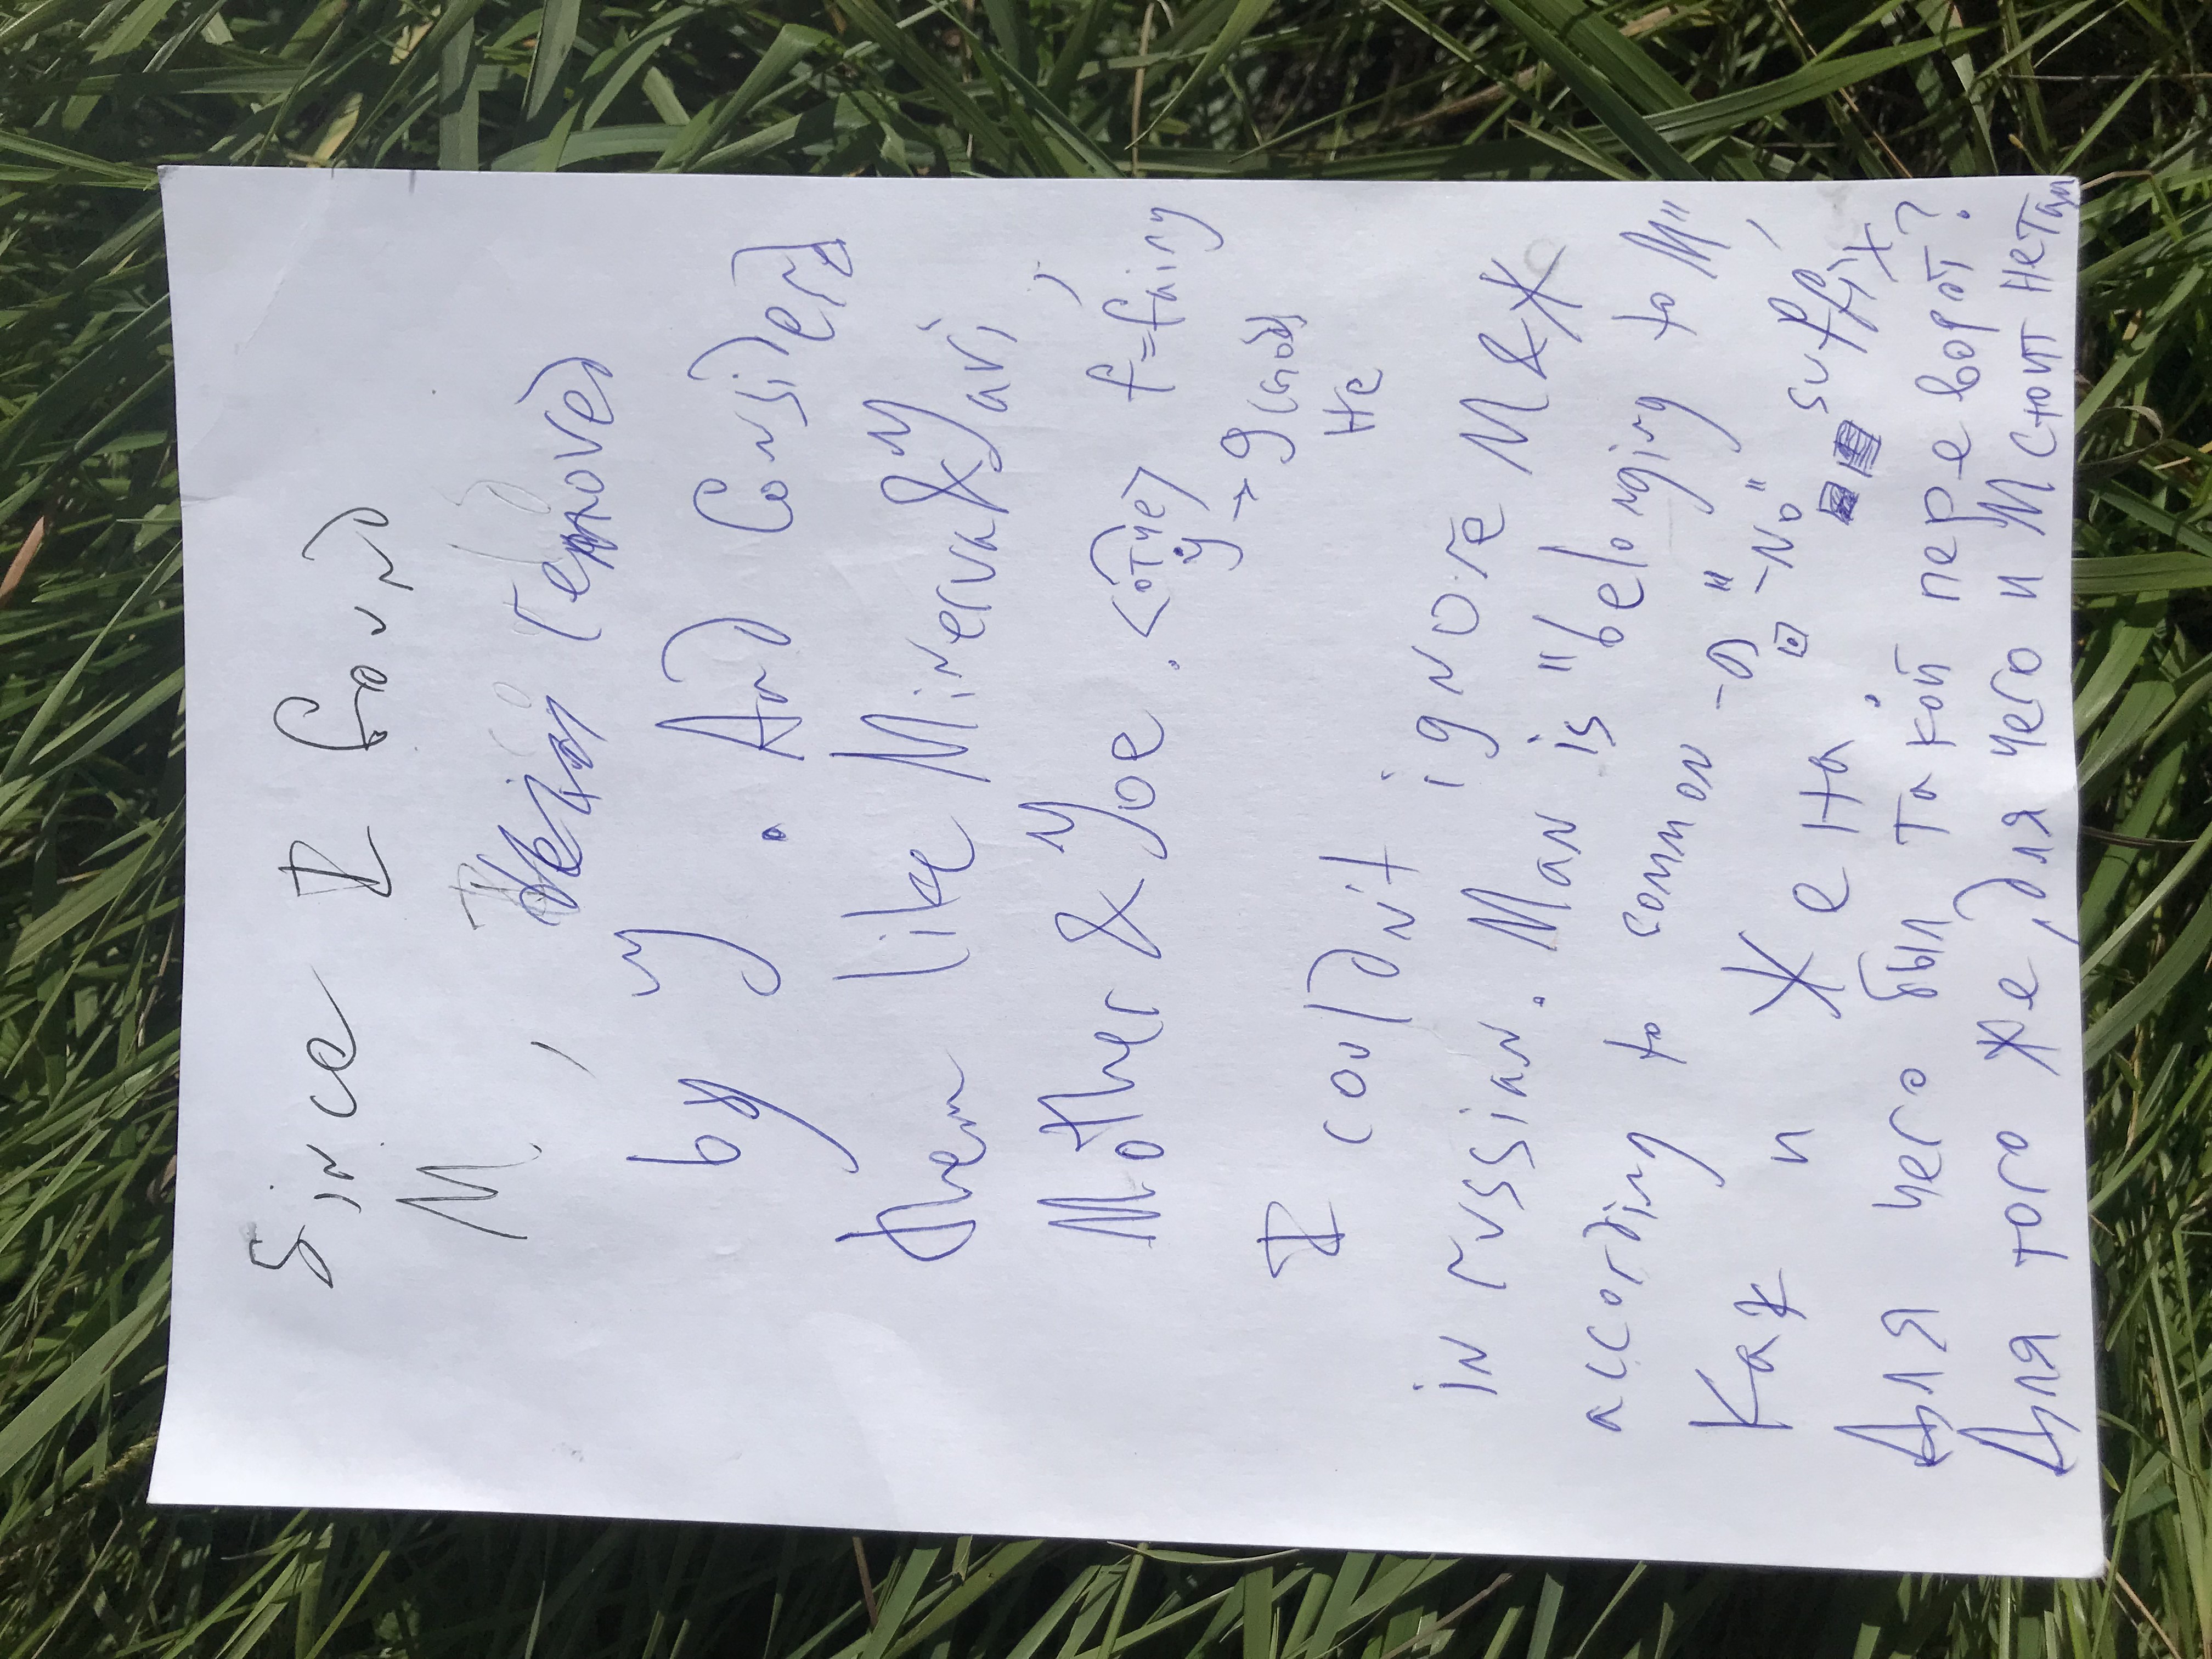 Since I found
M, removed
by y. And Considerd
them like Minerva&Yari,
Mother & Yoe. <отче> f=fairy
y → g (God)
He
I couldn't ignore M&Ж
in russian. Man is "belonging to M"
according to common "-No" suffix,
Как и Жена.
Для чего был такой переворот?
Для того же, для чего и М стоит не там